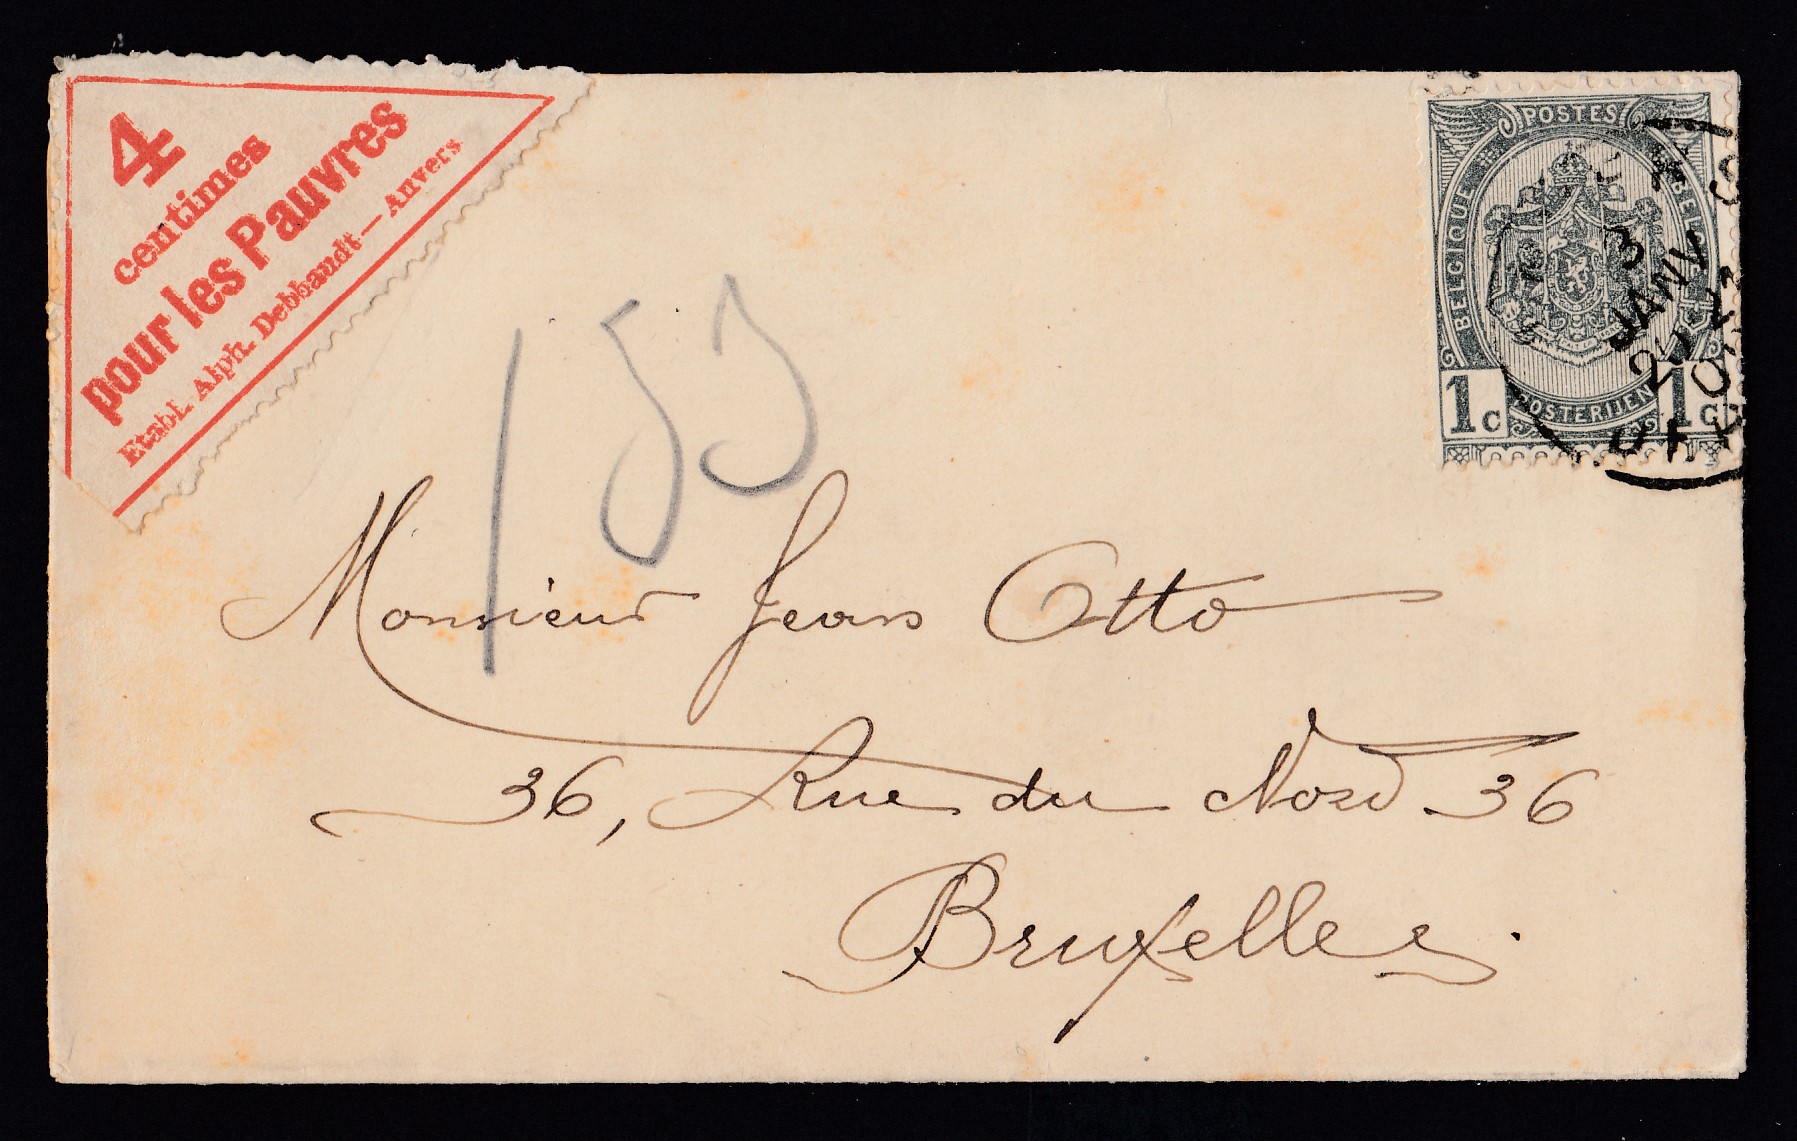 4
centimes
pour les Pauvres
Etabl. Alph. Debbaudt — Anvers
POSTES
BELGIQUE
BELGIË
POSTERIJEN
1c 1c
3
JANV
20-21
153
Monsieur Jean Otto
36, Rue du Nord 36
Bruxelles.